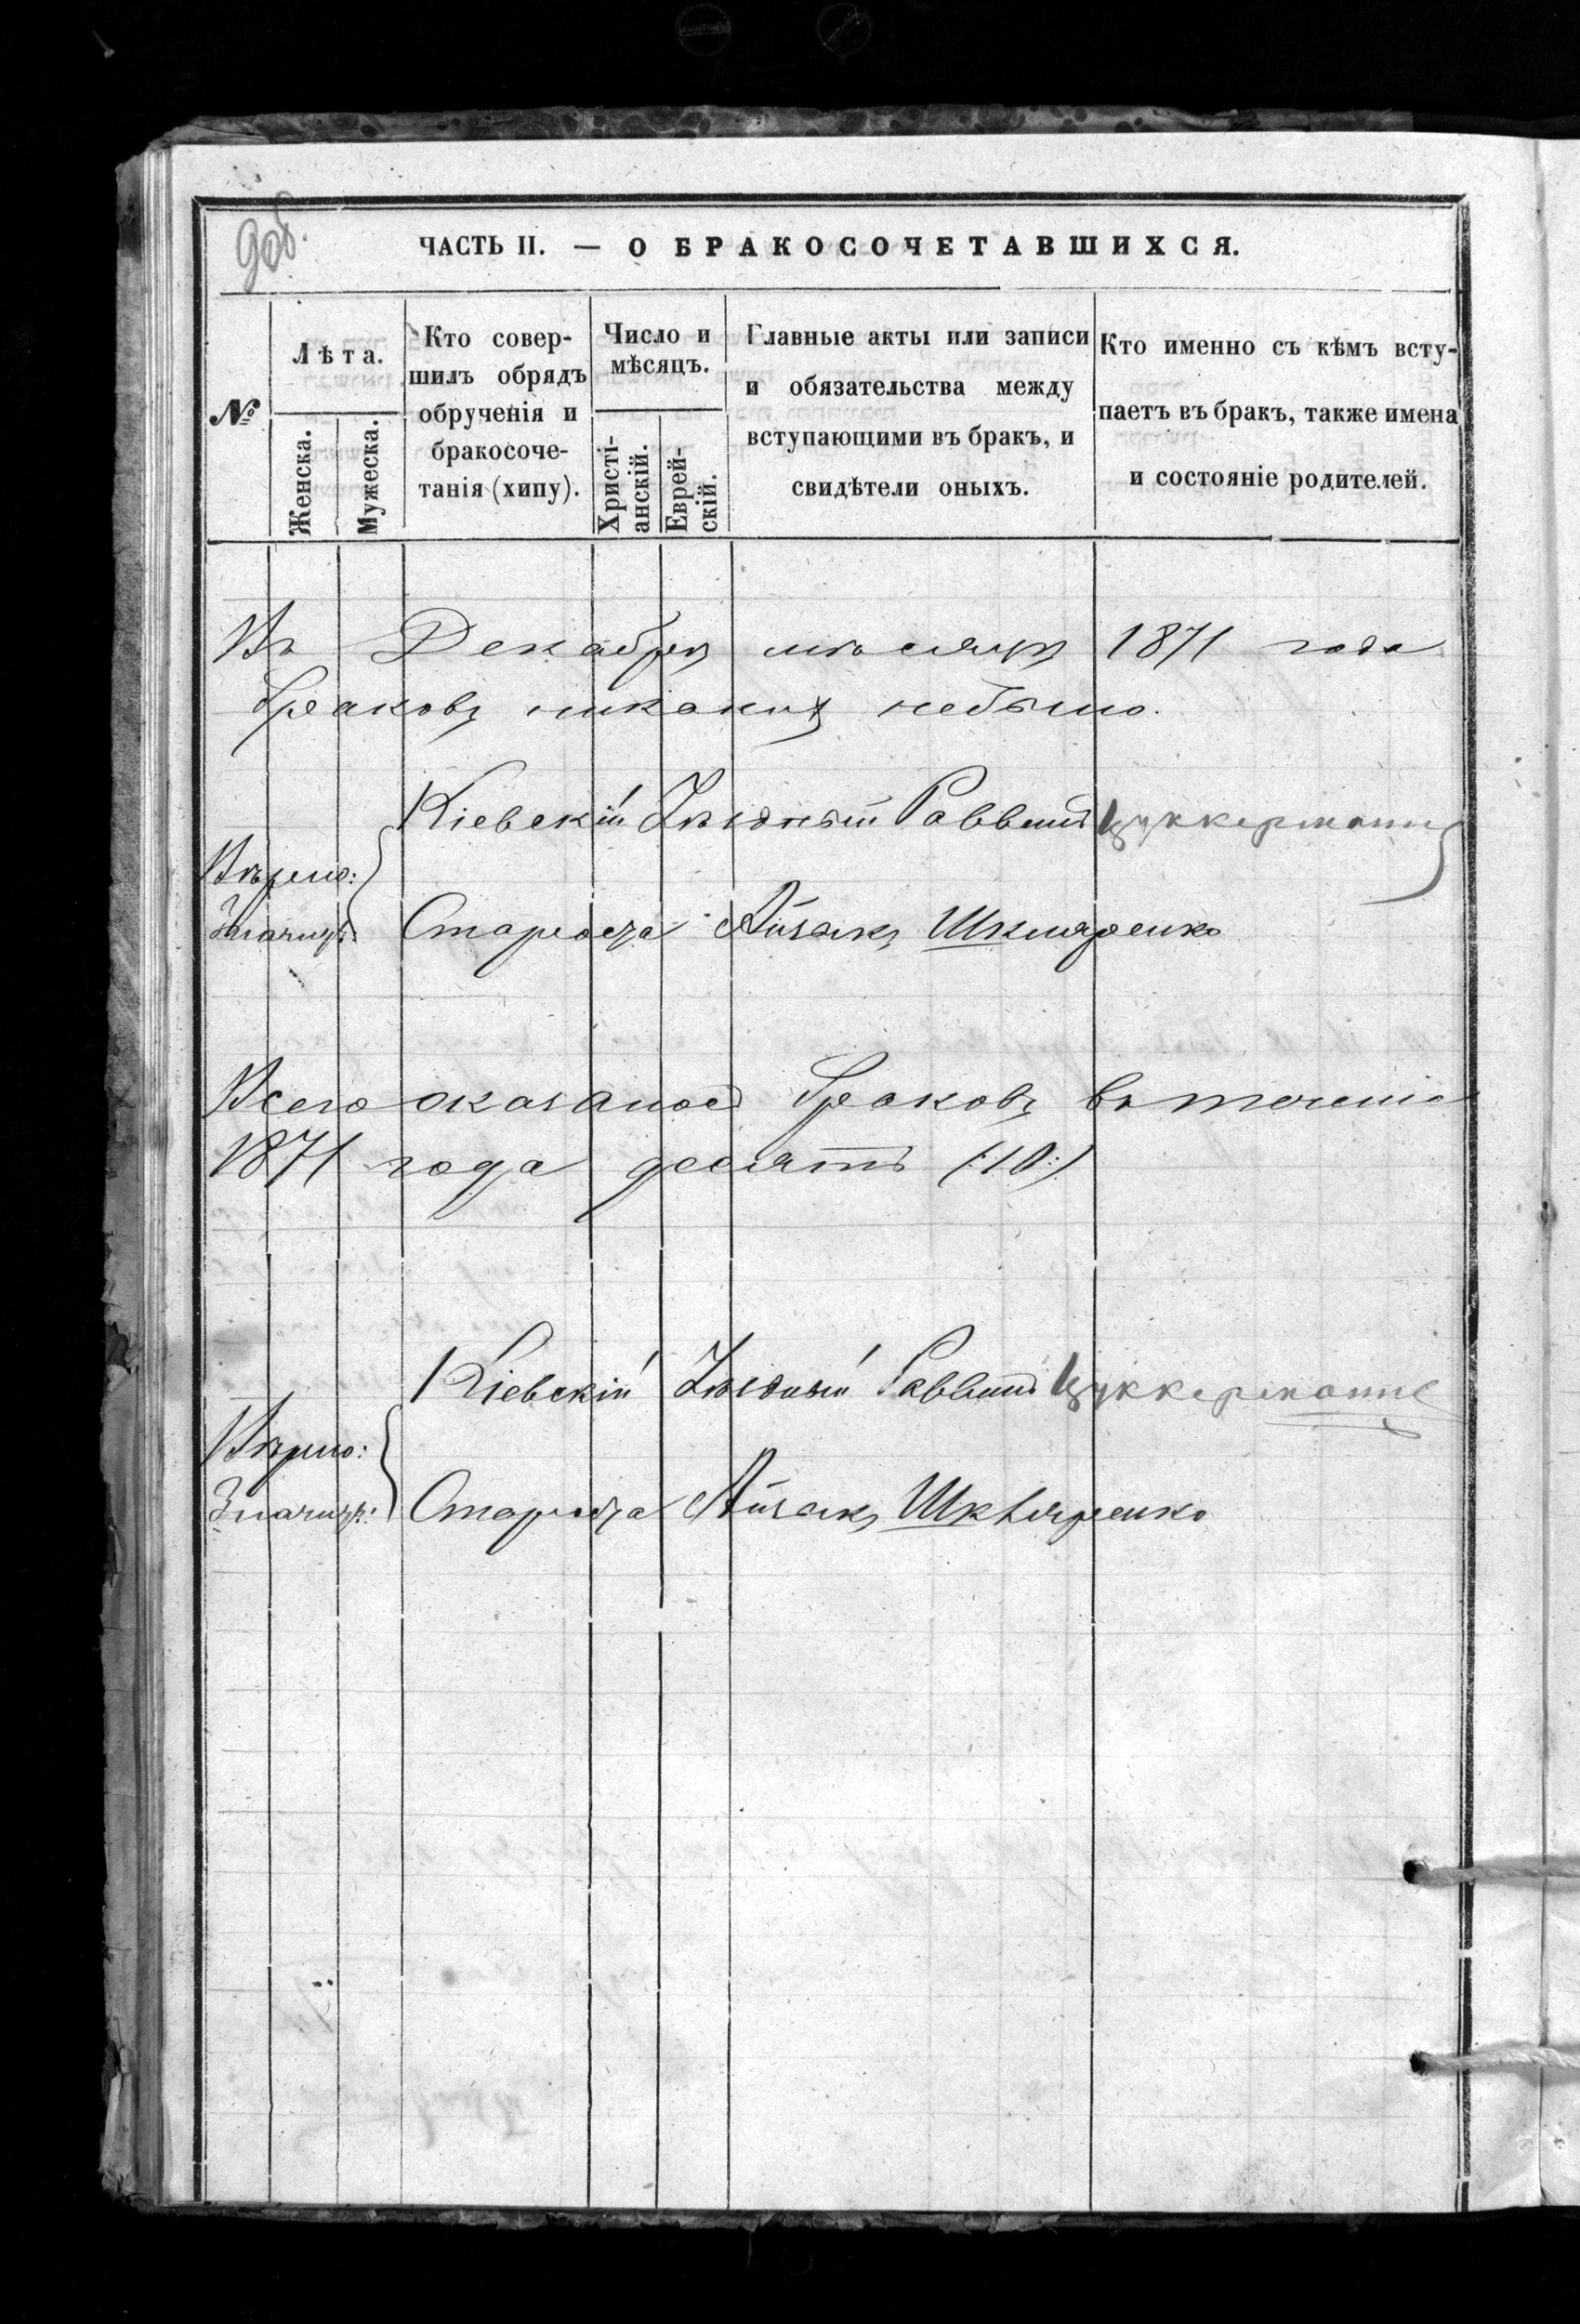 90об.
ЧАСТЬ II. — О БРАКОСОЧЕТАВШИХСЯ.
№
Лѣта.
Женска.
Мужеска.
Кто совер-
шилъ обрядъ
обрученія и
бракосоче-
танія (хипу).
Число и
мѣсяцъ.
Христі-
анскій.
Еврей-
скій.
Главные акты или записи
и обязательства между
вступающими въ бракъ, и
свидѣтели оныхъ.
Кто именно съ кѣмъ всту-
паетъ въ бракъ, также имена
и состояніе родителей.
Въ Декабрѣ мѣсяцѣ 1871 года
браковъ никакихъ небыло.
Кіевскій Уѣздный Раввинъ Цуккерманъ
Вѣрно:
Значитъ: Староста Айзикъ Шкляренко
Всего оказалось браковъ въ теченіе
1871 года десять (:10:)
Кіевскій Уѣздный Раввинъ Цуккерманъ
Вѣрно:
Значитъ: Староста Айзикъ Шкляренко